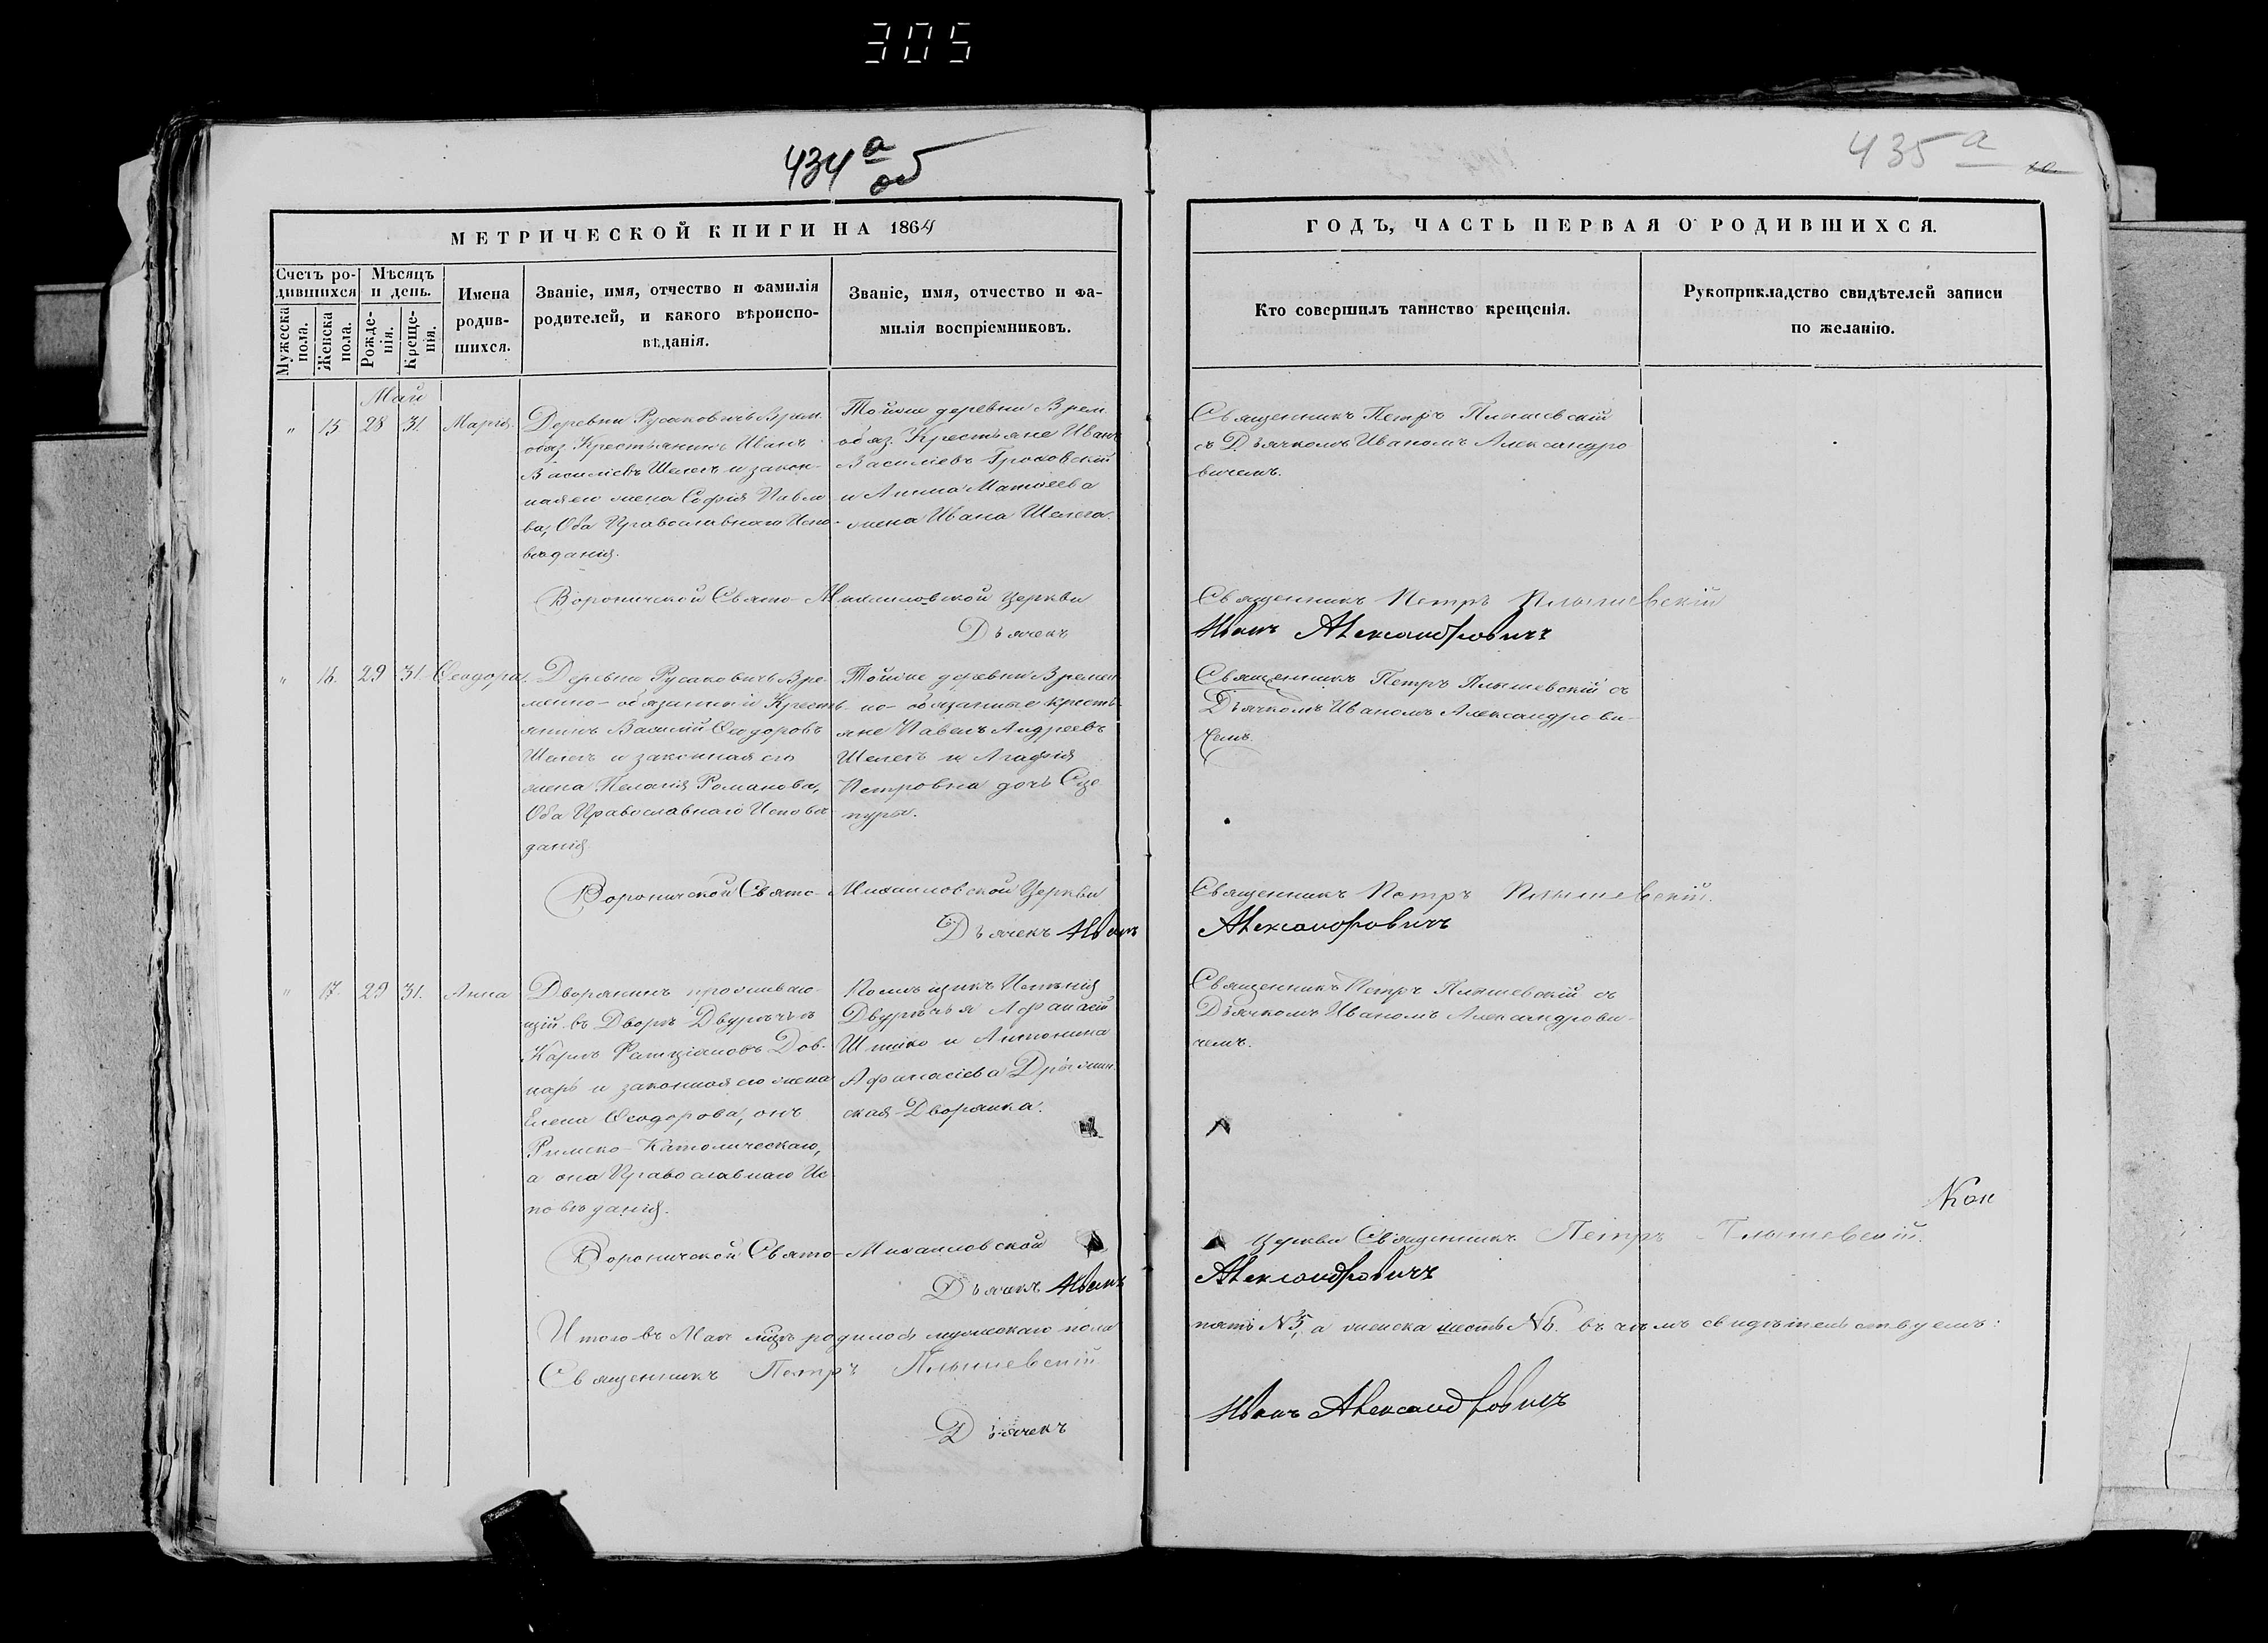 305
434 а
об
435 а
МЕТРИЧЕСКОЙ КНИГИ НА 1864
Счетъ ро-
дившихся
Мужеска
пола.
Женска
пола.
Мѣсяцъ
и день.
Рожде-
нія.
Креще-
нія.
Имена
родив-
шихся.
Званіе, имя, отчество и фамилія
родителей, и какого вѣроиспо-
вѣданія.
Званіе, имя, отчество и фа-
милія воспріемниковъ.
ГОДЪ, ЧАСТЬ ПЕРВАЯ О РОДИВШИХСЯ.
Кто совершилъ таинство крещенія.
Рукоприкладство свидѣтелей записи
по желанію.
Май
" 15 28 31. Марія.
Деревни Русаковичъ Врем.
обяз. Крестьянинъ Иванъ
Василіевъ Шелегъ и закон-
ная его жена Софія Павло
ва, Оба Православнаго Испо-
вѣданія.
Тойже деревни Врем.
обяз. Крестьяне Иванъ
Василіевъ Гроховскій
и Анна Матѳеева
жена Ивана Шелега.
Священникъ Петръ Плышевскій
съ Дьячкомъ Иваномъ Александро
вичемъ.
Вороничской Свято-Михаиловской Церкви
Священникъ Петръ Плышевскій
Дьячекъ
Иванъ Александровичъ
" 16. 29 31. Ѳеодора.
Деревни Русаковичъ Вре-
менно-обязанный Кресть
янинъ Василій Ѳеодоровъ
Шелегъ и законная его
жена Пелагія Романова,
Оба Православнаго Исповѣ
данія.
Тойже деревни Времен
но-обязанные кресть-
яне Павелъ Андреевъ
Шелегъ и Агафія
Петровна дочь Сце
пуры.
Священникъ Петръ Плышевскій съ
Дьячкомъ Иваномъ Александрови-
чемъ.
Вороничской Свято-Михаиловской Церкви
Священникъ Петръ Плышевскій.
Дьячекъ Иванъ
Александровичъ
" 17. 29 31. Анна
Дворянинъ проживаю-
щій въ Дворѣ Двурѣчьѣ
Карлъ Довнаръ и законная его жена
Елена Ѳеодорова, онъ
Римско-Католическаго,
а она Православнаго Ис-
повѣданія.
Помѣщикъ Имѣнія
Двурѣчья Афанасій
и Антонина
Афанасіева
ская Дворянка.
Священникъ Петръ Плышевскій съ
Дьячкомъ Иваномъ Александрови-
чемъ.
Кон
Вороничской Свято-Михаиловской
Церкви Священникъ Петръ Плышевскій.
Дьячекъ Иванъ
Александровичъ
Итого въ Маѣ мцѣ родилось мужескаго пола
пять №5, а женска шесть №6. въ чемъ свидѣтельствуемъ:
Священникъ Петръ Плышевскій
Дьячекъ
Иванъ Александровичъ